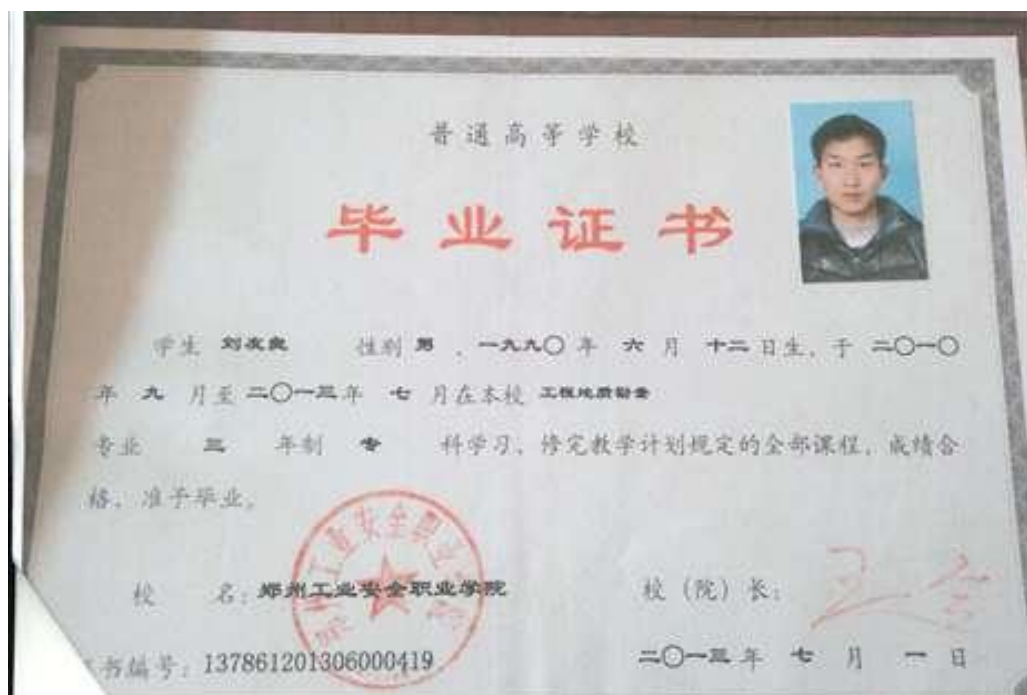 普通高等学校
毕业证书
学生 刘友良 性别 男 , 一九九〇 年 六 月 十二 日生, 于 二〇一〇
年 九 月至 二〇一三 年 七 月在本校 工程地质勘查
专业 三 年制 专 科学习, 修完教学计划规定的全部课程, 成绩合
格, 准予毕业。
校 名: 郑州工业安全职业学院
校 (院) 长:
书编号: 137861201306000419
二〇一三 年 七 月 一 日